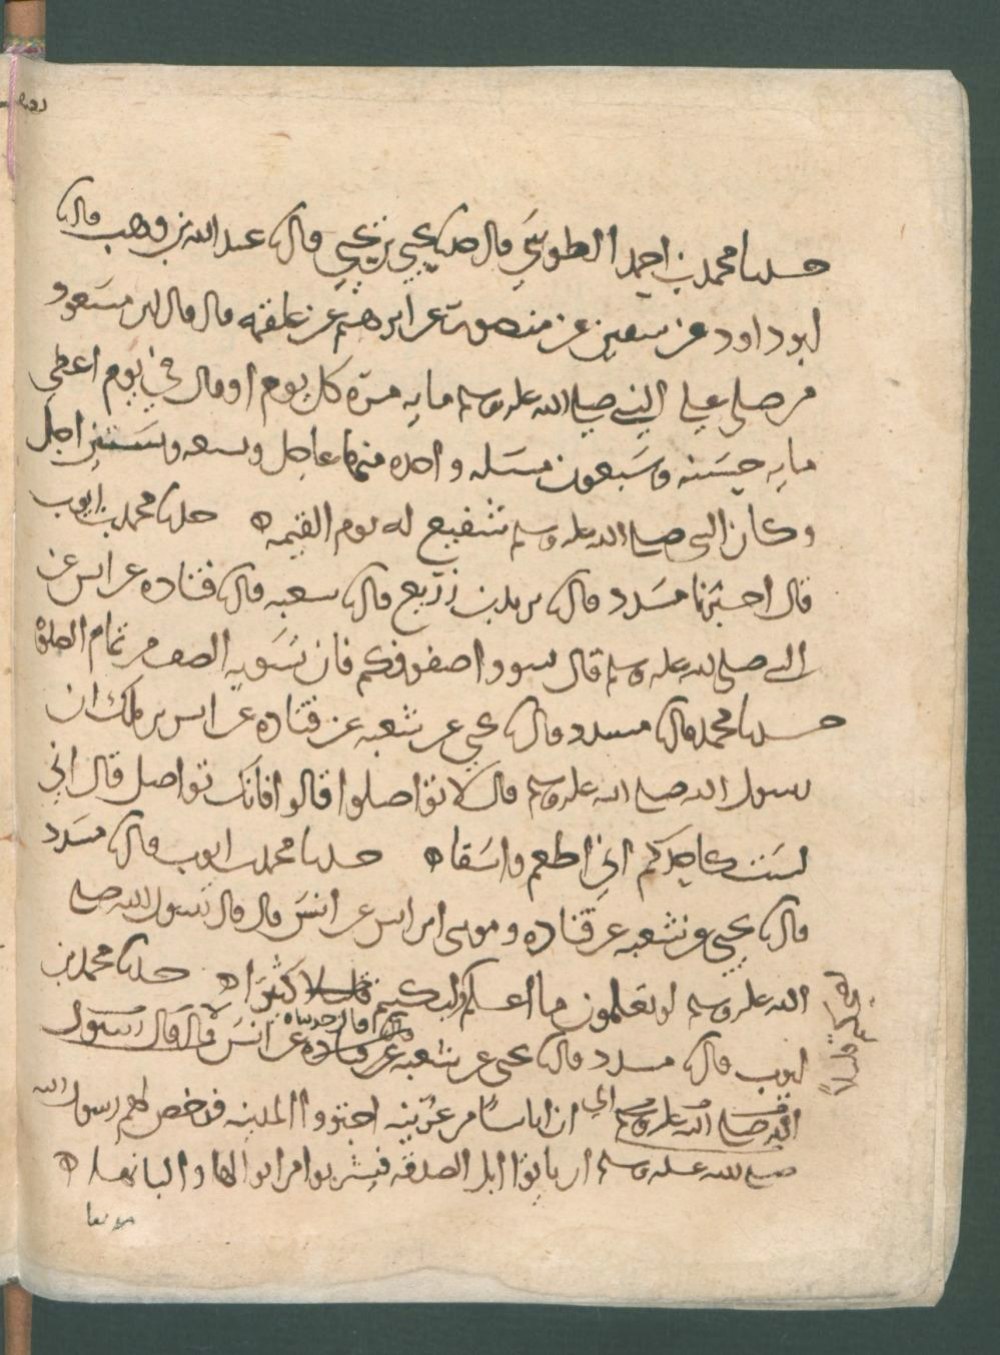 حدثنا محمد بن احمد الطوسي قال حدثنا يحيى بن يحيى قال عبد الله بن وهب قال
ابو داود عن سفين عن منصور عن ابرهيم عن علقمه قال قال ابن مسعود
من صلى على النبي صلى الله عليه وسلم مايه مرة كل يوم او قال في يوم اعطي
مايه حسنه وسبعون مسله واحده منها عاجل وتسعه وستين اجل
وكان النبي صلى الله عليه وسلم شفيع له يوم القيمه ه حدثنا محمد بن ايوب
قال اخبرنا مسدد قال يزيد بن زريع قال شعبه قال قتاده عن انس عن
النبي صلى الله عليه وسلم قال سووا صفوفكم فان تسوية الصف من تمام الصلوة
حدثنا محمد قال مسدد قال يحيى عن شعبه عن قتاده عن انس بن ملك ان
رسول الله صلى الله عليه وسلم قال لا تواصلوا قالوا فانك تواصل قال اني
لست كاحدكم اني اطعم واسقا ه حدثنا محمد بن ايوب قال مسدد
قال يحيى عن شعبه عن قتاده وموسى ابن انس عن انس قال قال رسول الله صلى
الله عليه وسلم لو تعلمون ما اعلم ولبكيتم كثيرا ه حدثنا محمد بن
لضحكتم قليلا
ايوب قال مسدد قال يحيى عن شعبه عن قتاده عن انس قال قال رسول
الله صلى الله عليه وسلم ان اناسا من عرينه اجتووا المدينه فرخص لهم رسول الله
صلى الله عليه وسلم ان ياتوا ابل الصدقه فيشربوا من ابوالها والبانها ه